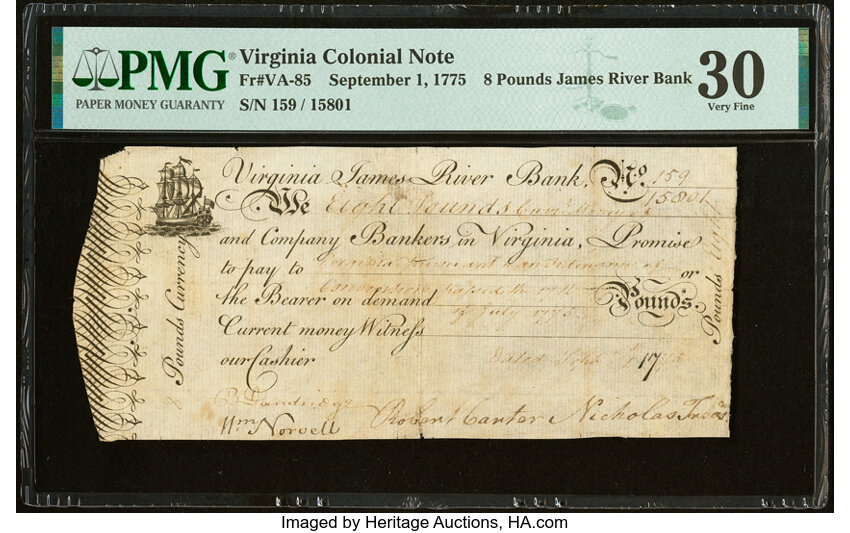 PMG®
PAPER MONEY GUARANTY
Virginia Colonial Note
Fr#VA-85 September 1, 1775 8 Pounds James River Bank
S/N 159 / 15801
30
Very Fine
Virginia James River Bank, No. 159
15801
We Eight Pounds
and Company Bankers in Virginia, Promise
to pay to or
the Bearer on demand Pounds.
July 1775
Current money Witness
our Cashier Dated Sept 1 1775
Pounds Currency
Pounds
B Dandridge
Wm Norvell
Robert Carter Nicholas Treas
Imaged by Heritage Auctions, HA.com